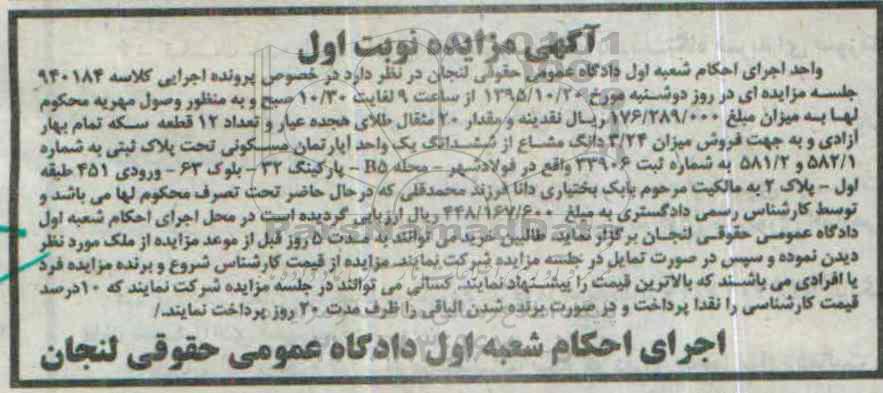 آگهی مزایده نوبت اول
واحد اجرای احکام شعبه اول دادگاه عمومی حقوقی لنجان در نظر دارد در خصوص پرونده اجرایی کلاسه ۹۴۰۱۸۴
جلسه مزایده ای در روز دوشنبه مورخ ۱۳۹۵/۱۰/۲۰ از ساعت ۹ لغایت ۱۰/۳۰ صبح و به منظور وصول مهریه محکوم
لها به میزان مبلغ ۱۷۶/۲۸۹/۰۰۰ ریال نقدینه و مقدار ۲۰ مثقال طلای هجده عیار و تعداد ۱۲ قطعه سکه تمام بهار
ازادی و به جهت فروش میزان ۳/۲۴ دانگ مشاع از ششدانگ یک واحد آپارتمان مسکونی تحت پلاک ثبتی به شماره
۵۸۲/۱ و ۵۸۱/۲ به شماره ثبت ۳۳۹۰۶ واقع در فولادشهر - محله B۵ - پارکینگ ۳۲ - بلوک ۶۳ - ورودی ۴۵۱ طبقه
اول - پلاک ۲ به مالکیت مرحوم بابک بختیاری دانا فرزند محمدقلی که در حال حاضر تحت تصرف محکوم لها می باشد و
توسط کارشناس رسمی دادگستری به مبلغ ۴۴۸/۱۶۷/۶۰۰ ریال ارزیابی گردیده است در محل اجرای احکام شعبه اول
دادگاه عمومی حقوقی لنجان برگزار نماید. طالبین خرید می توانند به مدت ۵ روز قبل از موعد مزایده از ملک مورد نظر
دیدن نموده و سپس در صورت تمایل در جلسه مزایده شرکت نمایند. مزایده از قیمت کارشناس شروع و برنده مزایده فرد
یا افرادی می باشند که بالاترین قیمت را پیشنهاد نمایند. کسانی می توانند در جلسه مزایده شرکت نمایند که ۱۰درصد
قیمت کارشناسی را نقدا پرداخت و در صورت برنده شدن الباقی را ظرف مدت ۲۰ روز پرداخت نمایند./
اجرای احکام شعبه اول دادگاه عمومی حقوقی لنجان
ParsNamadData